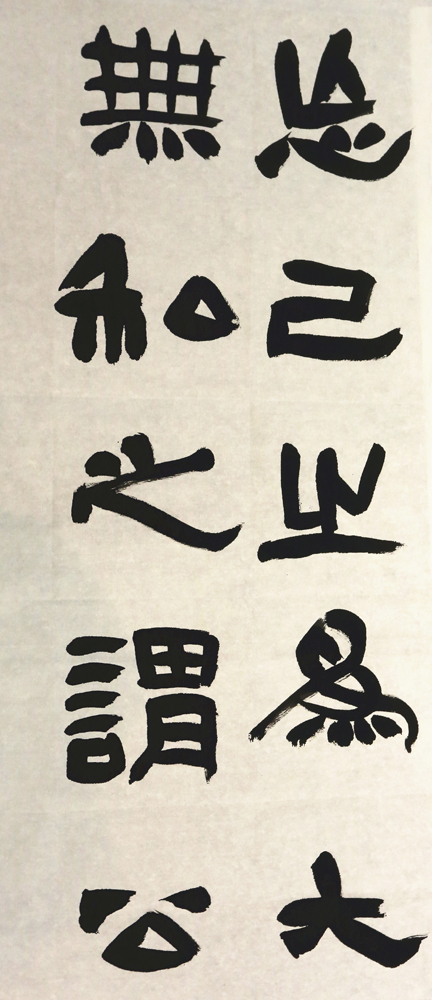 忘己之為大
無私之謂公